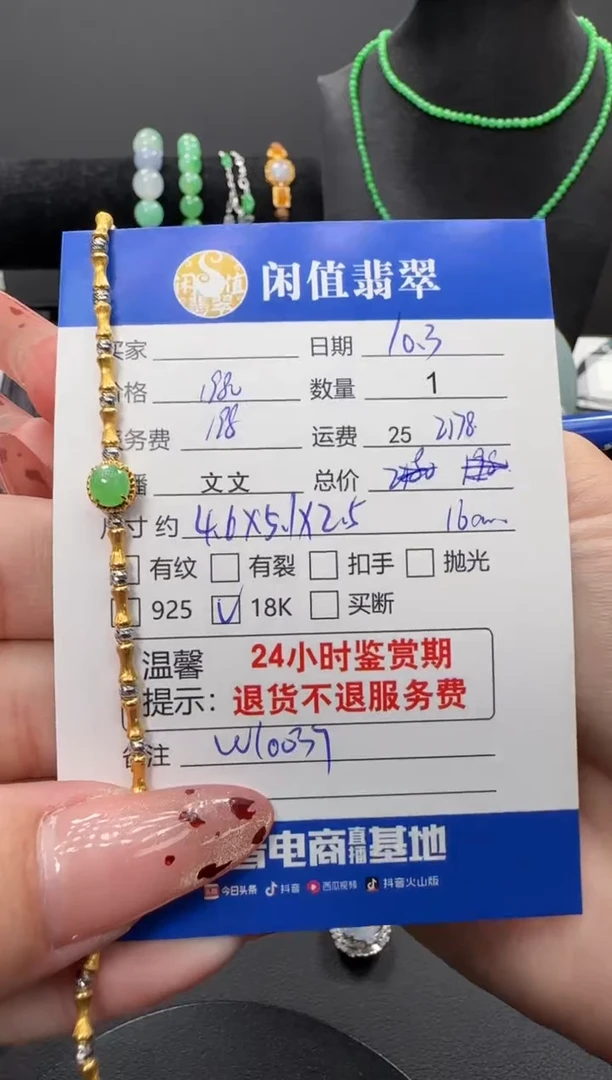 闲值翡翠
闲值翡翠
买家 日期 10.3
价格 1980 数量 1
服务费 198 运费 25 2178
主播 文文 总价
尺寸约 4.6X5.1X2.5 16cm
有纹 有裂 扣手 抛光
925 18K 买断
温馨 24小时鉴赏期
提示: 退货不退服务费
备注 W10037
电商直播基地
今日头条 抖音 西瓜视频 抖音火山版